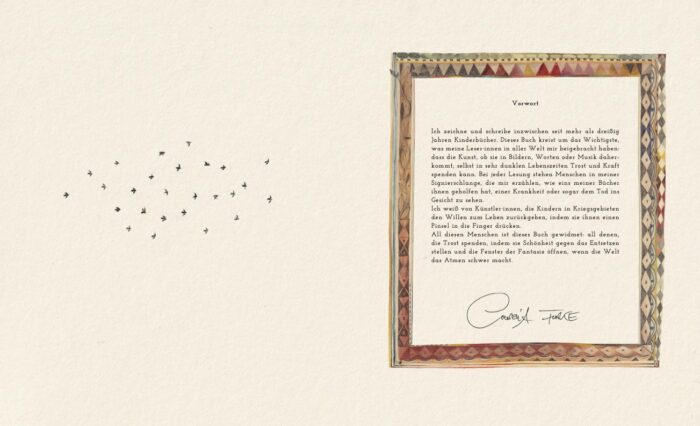 Vorwort
Ich zeichne und schreibe inzwischen seit mehr als dreißig
Jahren Kinderbücher. Dieses Buch kreist um das Wichtigste,
was meine Leser:innen in aller Welt mir beigebracht haben:
dass die Kunst, ob sie in Bildern, Worten oder Musik daher-
kommt, selbst in sehr dunklen Lebenszeiten Trost und Kraft
spenden kann. Bei jeder Lesung stehen Menschen in meiner
Signierschlange, die mir erzählen, wie eins meiner Bücher
ihnen geholfen hat, einer Krankheit oder sogar dem Tod ins
Gesicht zu sehen.
Ich weiß von Künstler:innen, die Kindern in Kriegsgebieten
den Willen zum Leben zurückgeben, indem sie ihnen einen
Pinsel in die Finger drücken.
All diesen Menschen ist dieses Buch gewidmet: all denen,
die Trost spenden, indem sie Schönheit gegen das Entsetzen
stellen und die Fenster der Fantasie öffnen, wenn die Welt
das Atmen schwer macht.